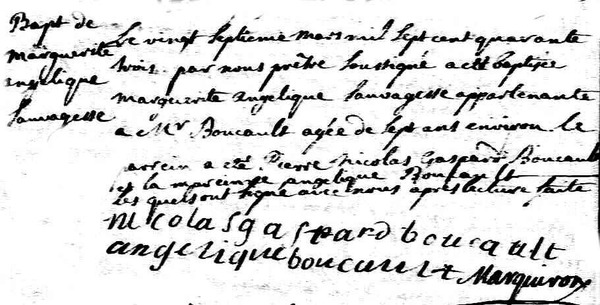 Bapt de
marguerite
angelique
Sauvagesse
Le vingt Septieme mars mil Sept cent quarante
trois par nous prêtre Soussigné a eté baptisée
marguerite angelique Sauvagesse appartenante
a Mr Boucault agée de Sept ans environ le
parein a eté Pierre Nicolas Gaspard Boucault
et la mareine angelique Boucault
Lesquels ont signé avec nous apres lecture faite
nicolas gaspard boucault
angelique boucault